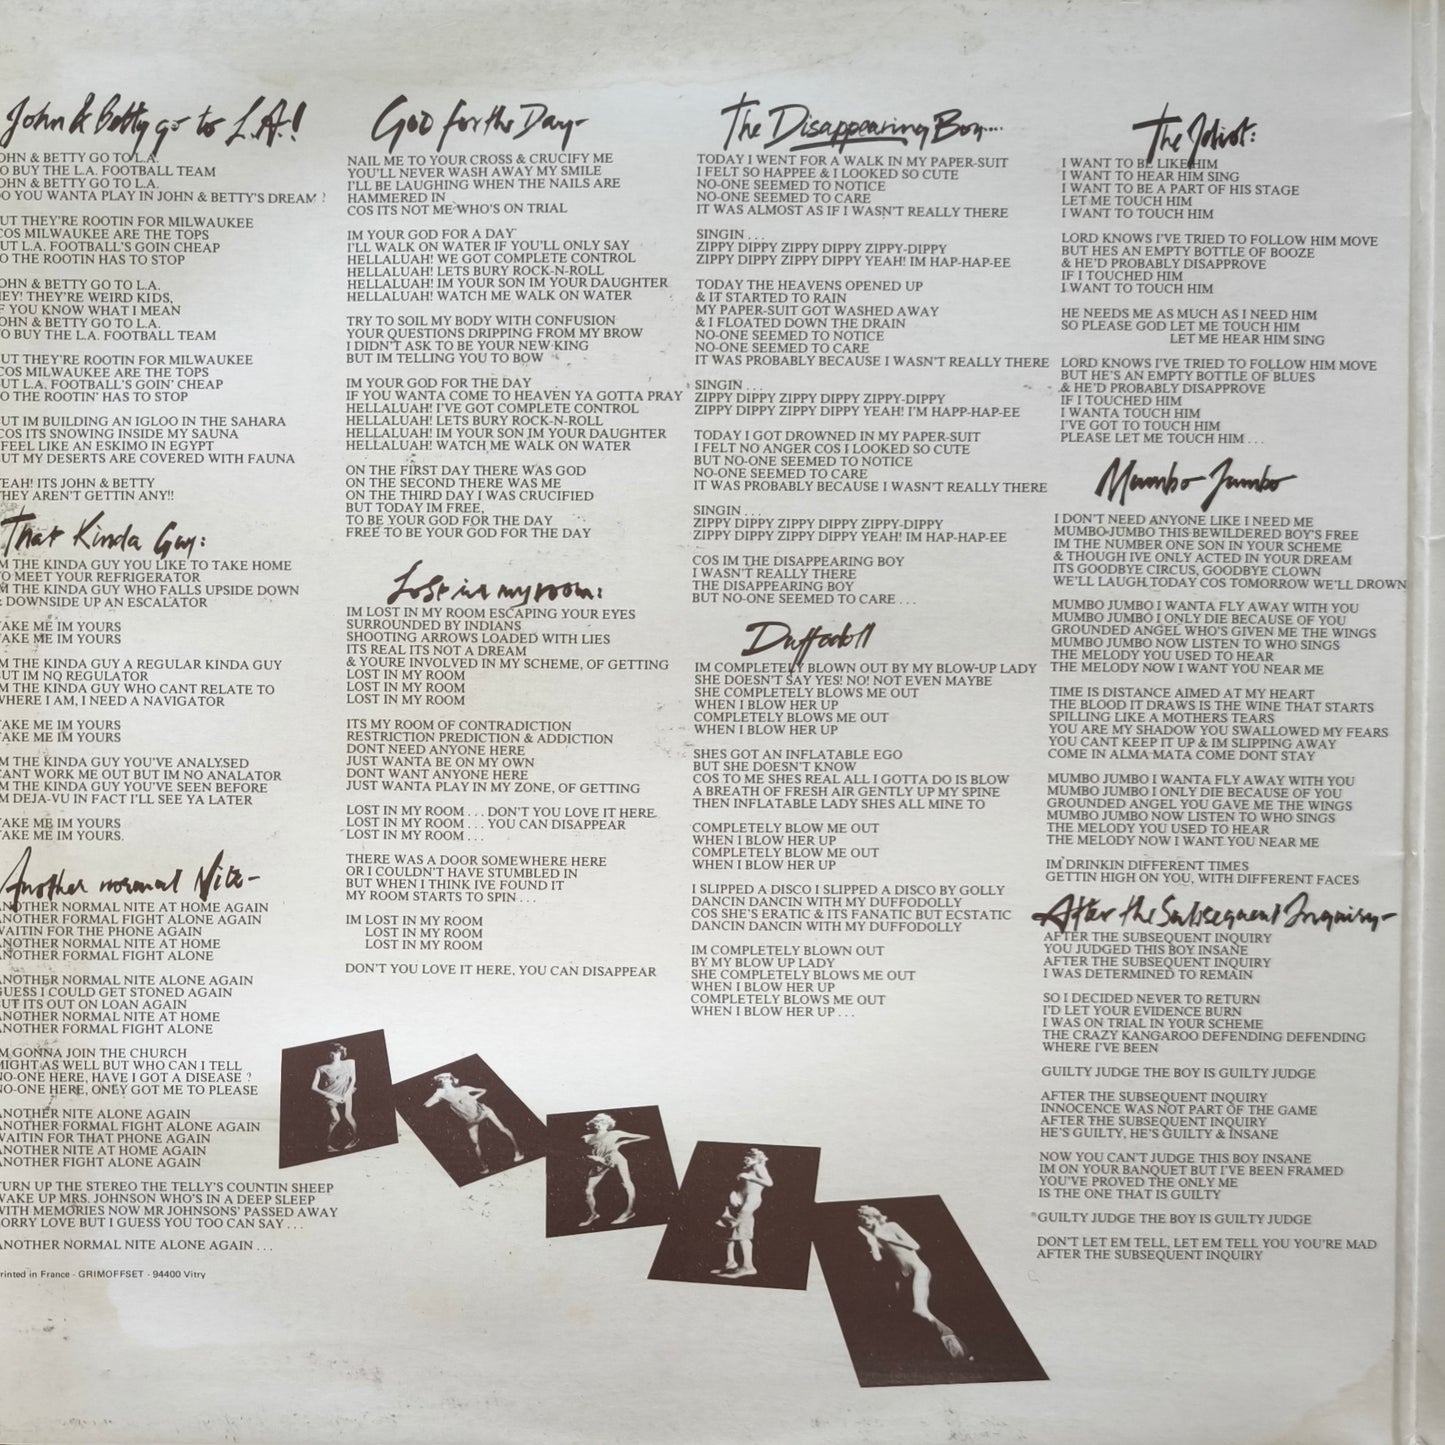 John & Betty go to L.A!
OHN & BETTY GO TO L.A.
O BUY THE L.A. FOOTBALL TEAM
OHN & BETTY GO TO L.A.
O YOU WANTA PLAY IN JOHN & BETTY'S DREAM ?
UT THEY'RE ROOTIN FOR MILWAUKEE
COS MILWAUKEE ARE THE TOPS
UT L.A. FOOTBALL'S GOIN CHEAP
O THE ROOTIN HAS TO STOP
OHN & BETTY GO TO L.A.
EY! THEY'RE WEIRD KIDS,
F YOU KNOW WHAT I MEAN
OHN & BETTY GO TO L.A.
O BUY THE L.A. FOOTBALL TEAM
UT THEY'RE ROOTIN FOR MILWAUKEE
COS MILWAUKEE ARE THE TOPS
UT L.A. FOOTBALL'S GOIN' CHEAP
O THE ROOTIN' HAS TO STOP
UT IM BUILDING AN IGLOO IN THE SAHARA
COS ITS SNOWING INSIDE MY SAUNA
FEEL LIKE AN ESKIMO IN EGYPT
UT MY DESERTS ARE COVERED WITH FAUNA
EAH! ITS JOHN & BETTY
HEY AREN'T GETTIN ANY!!
That Kinda Guy:
M THE KINDA GUY YOU LIKE TO TAKE HOME
O MEET YOUR REFRIGERATOR
M THE KINDA GUY WHO FALLS UPSIDE DOWN
& DOWNSIDE UP AN ESCALATOR
TAKE ME IM YOURS
TAKE ME IM YOURS
M THE KINDA GUY A REGULAR KINDA GUY
BUT IM NO REGULATOR
M THE KINDA GUY WHO CANT RELATE TO
WHERE I AM, I NEED A NAVIGATOR
TAKE ME IM YOURS
TAKE ME IM YOURS
M THE KINDA GUY YOU'VE ANALYSED
CANT WORK ME OUT BUT IM NO ANALATOR
M THE KINDA GUY YOU'VE SEEN BEFORE
M DEJA-VU IN FACT I'LL SEE YA LATER
TAKE ME IM YOURS
TAKE ME IM YOURS.
Another normal Nite-
ANOTHER NORMAL NITE AT HOME AGAIN
ANOTHER FORMAL FIGHT ALONE AGAIN
WAITIN FOR THE PHONE AGAIN
ANOTHER NORMAL NITE AT HOME
ANOTHER FORMAL FIGHT ALONE
ANOTHER NORMAL NITE ALONE AGAIN
GUESS I COULD GET STONED AGAIN
BUT ITS OUT ON LOAN AGAIN
ANOTHER NORMAL NITE AT HOME
ANOTHER FORMAL FIGHT ALONE
M GONNA JOIN THE CHURCH
MIGHT AS WELL BUT WHO CAN I TELL
NO-ONE HERE, HAVE I GOT A DISEASE ?
NO-ONE HERE, ONLY GOT ME TO PLEASE
ANOTHER NITE ALONE AGAIN
ANOTHER FORMAL FIGHT ALONE AGAIN
WAITIN FOR THAT PHONE AGAIN
ANOTHER NITE AT HOME AGAIN
ANOTHER FIGHT ALONE AGAIN
TURN UP THE STEREO THE TELLY'S COUNTIN SHEEP
WAKE UP MRS. JOHNSON WHO'S IN A DEEP SLEEP
WITH MEMORIES NOW MR JOHNSONS' PASSED AWAY
SORRY LOVE BUT I GUESS YOU TOO CAN SAY . . .
ANOTHER NORMAL NITE ALONE AGAIN . . .
rinted in France - GRIMOFFSET - 94400 Vitry
God for the Day-
NAIL ME TO YOUR CROSS & CRUCIFY ME
YOU'LL NEVER WASH AWAY MY SMILE
I'LL BE LAUGHING WHEN THE NAILS ARE
HAMMERED IN
COS ITS NOT ME WHO'S ON TRIAL
IM YOUR GOD FOR A DAY
I'LL WALK ON WATER IF YOU'LL ONLY SAY
HELLALUAH! WE GOT COMPLETE CONTROL
HELLALUAH! LETS BURY ROCK-N-ROLL
HELLALUAH! IM YOUR SON IM YOUR DAUGHTER
HELLALUAH! WATCH ME WALK ON WATER
TRY TO SOIL MY BODY WITH CONFUSION
YOUR QUESTIONS DRIPPING FROM MY BROW
I DIDN'T ASK TO BE YOUR NEW KING
BUT IM TELLING YOU TO BOW
IM YOUR GOD FOR THE DAY
IF YOU WANTA COME TO HEAVEN YA GOTTA PRAY
HELLALUAH! I'VE GOT COMPLETE CONTROL
HELLALUAH! LETS BURY ROCK-N-ROLL
HELLALUAH! IM YOUR SON IM YOUR DAUGHTER
HELLALUAH! WATCH ME WALK ON WATER
ON THE FIRST DAY THERE WAS GOD
ON THE SECOND THERE WAS ME
ON THE THIRD DAY I WAS CRUCIFIED
BUT TODAY IM FREE,
TO BE YOUR GOD FOR THE DAY
FREE TO BE YOUR GOD FOR THE DAY
Lost in my room:
IM LOST IN MY ROOM ESCAPING YOUR EYES
SURROUNDED BY INDIANS
SHOOTING ARROWS LOADED WITH LIES
ITS REAL ITS NOT A DREAM
& YOURE INVOLVED IN MY SCHEME, OF GETTING
LOST IN MY ROOM
LOST IN MY ROOM
LOST IN MY ROOM
ITS MY ROOM OF CONTRADICTION
RESTRICTION PREDICTION & ADDICTION
DONT NEED ANYONE HERE
JUST WANTA BE ON MY OWN
DONT WANT ANYONE HERE
JUST WANTA PLAY IN MY ZONE, OF GETTING
LOST IN MY ROOM . . . DON'T YOU LOVE IT HERE
LOST IN MY ROOM . . . YOU CAN DISAPPEAR
LOST IN MY ROOM . . .
THERE WAS A DOOR SOMEWHERE HERE
OR I COULDN'T HAVE STUMBLED IN
BUT WHEN I THINK IVE FOUND IT
MY ROOM STARTS TO SPIN . . .
IM LOST IN MY ROOM
LOST IN MY ROOM
LOST IN MY ROOM
DON'T YOU LOVE IT HERE, YOU CAN DISAPPEAR
The Disappearing Boy...
TODAY I WENT FOR A WALK IN MY PAPER-SUIT
I FELT SO HAPPEE & I LOOKED SO CUTE
NO-ONE SEEMED TO NOTICE
NO-ONE SEEMED TO CARE
IT WAS ALMOST AS IF I WASN'T REALLY THERE
SINGIN . . .
ZIPPY DIPPY ZIPPY DIPPY ZIPPY-DIPPY
ZIPPY DIPPY ZIPPY DIPPY YEAH! IM HAP-HAP-EE
TODAY THE HEAVENS OPENED UP
& IT STARTED TO RAIN
MY PAPER-SUIT GOT WASHED AWAY
& I FLOATED DOWN THE DRAIN
NO-ONE SEEMED TO NOTICE
NO-ONE SEEMED TO CARE
IT WAS PROBABLY BECAUSE I WASN'T REALLY THERE
SINGIN . . .
ZIPPY DIPPY ZIPPY DIPPY ZIPPY-DIPPY
ZIPPY DIPPY ZIPPY DIPPY YEAH! I'M HAPP-HAP-EE
TODAY I GOT DROWNED IN MY PAPER-SUIT
I FELT NO ANGER COS I LOOKED SO CUTE
BUT NO-ONE SEEMED TO NOTICE
NO-ONE SEEMED TO CARE
IT WAS PROBABLY BECAUSE I WASN'T REALLY THERE
SINGIN . . .
ZIPPY DIPPY ZIPPY DIPPY ZIPPY-DIPPY
ZIPPY DIPPY ZIPPY DIPPY YEAH! IM HAP-HAP-EE
COS IM THE DISAPPEARING BOY
I WASN'T REALLY THERE
THE DISAPPEARING BOY
BUT NO-ONE SEEMED TO CARE . . .
Duffodoll
IM COMPLETELY BLOWN OUT BY MY BLOW-UP LADY
SHE DOESN'T SAY YES! NO! NOT EVEN MAYBE
SHE COMPLETELY BLOWS ME OUT
WHEN I BLOW HER UP
COMPLETELY BLOWS ME OUT
WHEN I BLOW HER UP
SHES GOT AN INFLATABLE EGO
BUT SHE DOESN'T KNOW
COS TO ME SHES REAL ALL I GOTTA DO IS BLOW
A BREATH OF FRESH AIR GENTLY UP MY SPINE
THEN INFLATABLE LADY SHES ALL MINE TO
COMPLETELY BLOW ME OUT
WHEN I BLOW HER UP
COMPLETELY BLOW ME OUT
WHEN I BLOW HER UP
I SLIPPED A DISCO I SLIPPED A DISCO BY GOLLY
DANCIN DANCIN WITH MY DUFFODOLLY
COS SHE'S ERATIC & ITS FANATIC BUT ECSTATIC
DANCIN DANCIN WITH MY DUFFODOLLY
IM COMPLETELY BLOWN OUT
BY MY BLOW UP LADY
SHE COMPLETELY BLOWS ME OUT
WHEN I BLOW HER UP
COMPLETELY BLOWS ME OUT
WHEN I BLOW HER UP . . .
The Idiot:
I WANT TO BE LIKE HIM
I WANT TO HEAR HIM SING
I WANT TO BE A PART OF HIS STAGE
LET ME TOUCH HIM
I WANT TO TOUCH HIM
LORD KNOWS I'VE TRIED TO FOLLOW HIM MOVE
BUT HES AN EMPTY BOTTLE OF BOOZE
& HE'D PROBABLY DISAPPROVE
IF I TOUCHED HIM
I WANT TO TOUCH HIM
HE NEEDS ME AS MUCH AS I NEED HIM
SO PLEASE GOD LET ME TOUCH HIM
LET ME HEAR HIM SING
LORD KNOWS I'VE TRIED TO FOLLOW HIM MOVE
BUT HE'S AN EMPTY BOTTLE OF BLUES
& HE'D PROBABLY DISAPPROVE
IF I TOUCHED HIM
I WANTA TOUCH HIM
I'VE GOT TO TOUCH HIM
PLEASE LET ME TOUCH HIM . . .
Mumbo Jumbo
I DON'T NEED ANYONE LIKE I NEED ME
MUMBO-JUMBO THIS BEWILDERED BOY'S FREE
IM THE NUMBER ONE SON IN YOUR SCHEME
& THOUGH IVE ONLY ACTED IN YOUR DREAM
ITS GOODBYE CIRCUS, GOODBYE CLOWN
WE'LL LAUGH TODAY COS TOMORROW WE'LL DROWN
MUMBO JUMBO I WANTA FLY AWAY WITH YOU
MUMBO JUMBO I ONLY DIE BECAUSE OF YOU
GROUNDED ANGEL WHO'S GIVEN ME THE WINGS
MUMBO JUMBO NOW LISTEN TO WHO SINGS
THE MELODY YOU USED TO HEAR
THE MELODY NOW I WANT YOU NEAR ME
TIME IS DISTANCE AIMED AT MY HEART
THE BLOOD IT DRAWS IS THE WINE THAT STARTS
SPILLING LIKE A MOTHERS TEARS
YOU ARE MY SHADOW YOU SWALLOWED MY FEARS
YOU CANT KEEP IT UP & IM SLIPPING AWAY
COME IN ALMA-MATA COME DONT STAY
MUMBO JUMBO I WANTA FLY AWAY WITH YOU
MUMBO JUMBO I ONLY DIE BECAUSE OF YOU
GROUNDED ANGEL YOU GAVE ME THE WINGS
MUMBO JUMBO NOW LISTEN TO WHO SINGS
THE MELODY YOU USED TO HEAR
THE MELODY NOW I WANT YOU NEAR ME
IM DRINKIN DIFFERENT TIMES
GETTIN HIGH ON YOU, WITH DIFFERENT FACES
After the Subsequent Inquiry-
AFTER THE SUBSEQUENT INQUIRY
YOU JUDGED THIS BOY INSANE
AFTER THE SUBSEQUENT INQUIRY
I WAS DETERMINED TO REMAIN
SO I DECIDED NEVER TO RETURN
I'D LET YOUR EVIDENCE BURN
I WAS ON TRIAL IN YOUR SCHEME
THE CRAZY KANGAROO DEFENDING DEFENDING
WHERE I'VE BEEN
GUILTY JUDGE THE BOY IS GUILTY JUDGE
AFTER THE SUBSEQUENT INQUIRY
INNOCENCE WAS NOT PART OF THE GAME
AFTER THE SUBSEQUENT INQUIRY
HE'S GUILTY, HE'S GUILTY & INSANE
NOW YOU CAN'T JUDGE THIS BOY INSANE
IM ON YOUR BANQUET BUT I'VE BEEN FRAMED
YOU'VE PROVED THE ONLY ME
IS THE ONE THAT IS GUILTY
GUILTY JUDGE THE BOY IS GUILTY JUDGE
DON'T LET EM TELL, LET EM TELL YOU YOU'RE MAD
AFTER THE SUBSEQUENT INQUIRY